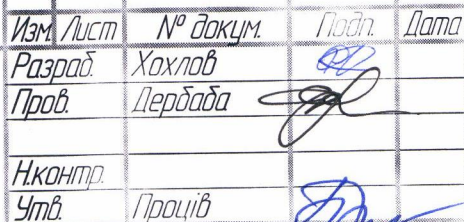 Изм. Лист № докум. Подп. Дата
Разраб. Хохлов
Пров. Дербаба
Н.контр.
Утв. Проців